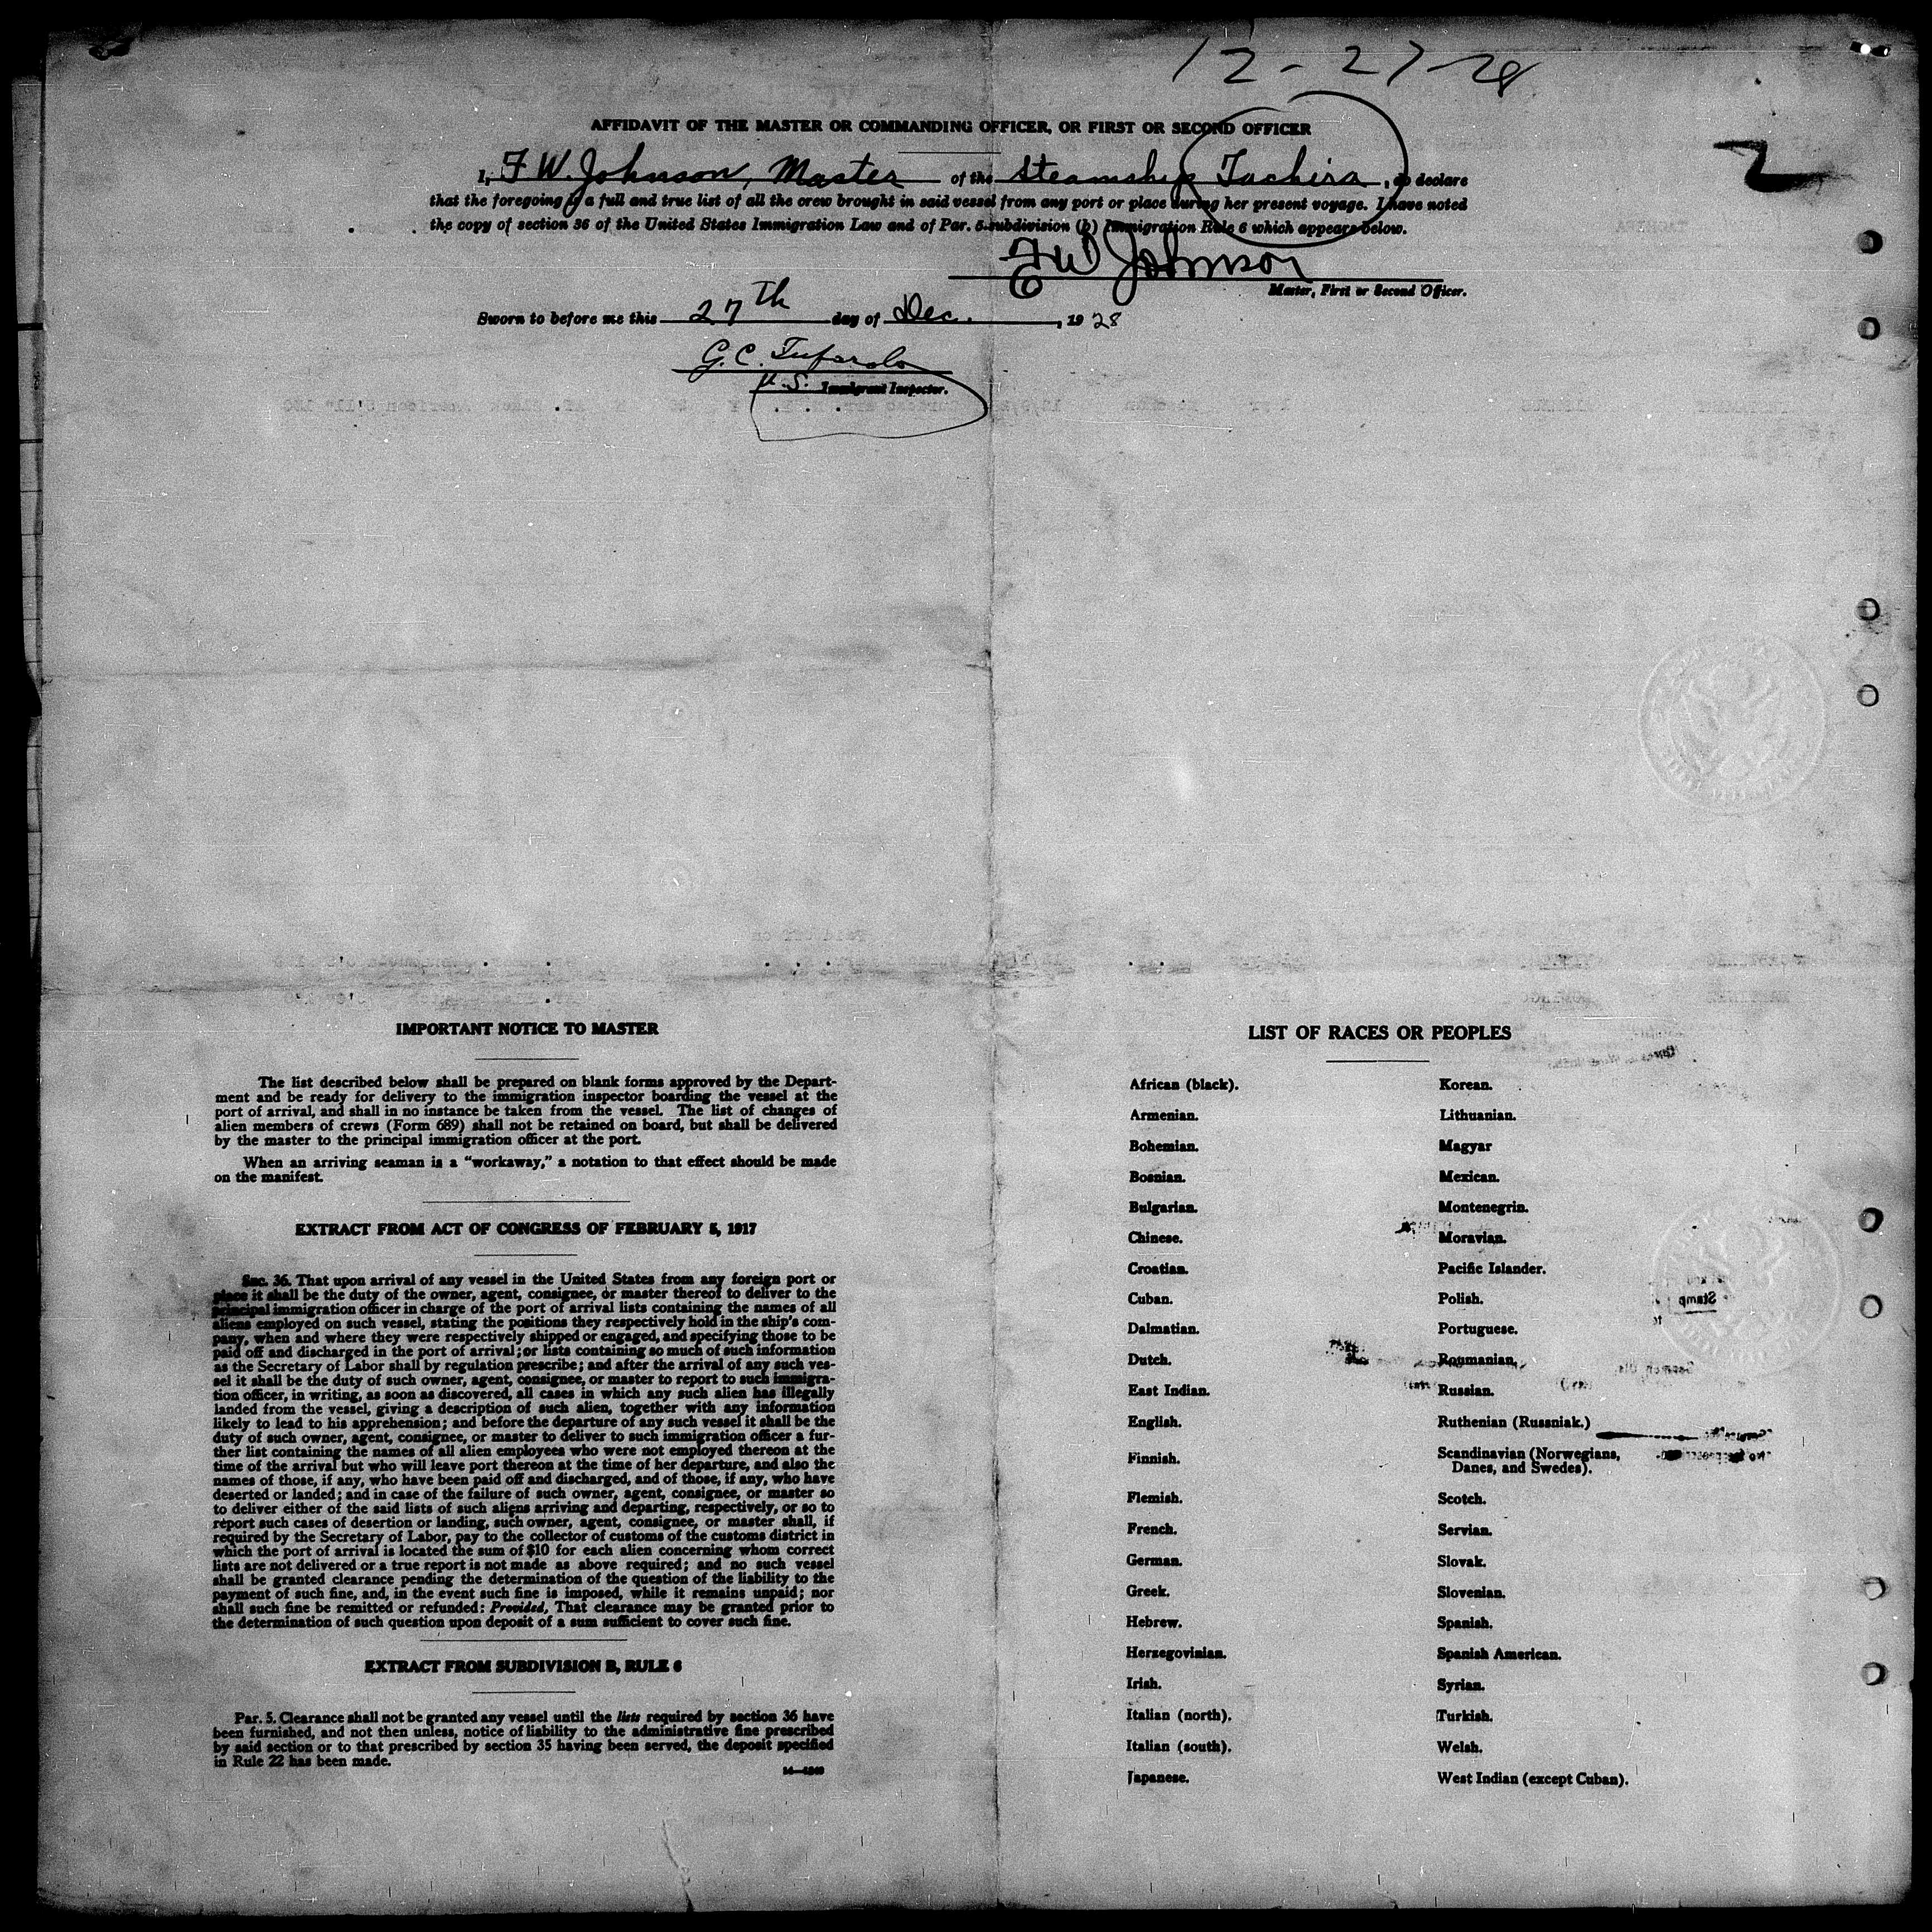 12-27-28
AFFIDAVIT OF THE MASTER OR COMMANDING OFFICER, OR FIRST OR SECOND OFFICER
I, F W. Johnson, Master of the Steamship Tachira, do declare
that the foregoing is a full and true list of all the crew brought in said vessel from any port or place during her present voyage. I have noted
the copy of section 36 of the United States Immigration Law and of Par. 5 subdivision (b) Immigration Rule 6 which appears below.
FW Johnson
Master, First or Second Officer.
Sworn to before me this 27th day of Dec., 1928
G. C.
U.S. Immigrant Inspector.
IMPORTANT NOTICE TO MASTER
The list described below shall be prepared on blank forms approved by the Depart-
ment and be ready for delivery to the immigration inspector boarding the vessel at the
port of arrival, and shall in no instance be taken from the vessel. The list of changes of
alien members of crews (Form 689) shall not be retained on board, but shall be delivered
by the master to the principal immigration officer at the port.
When an arriving seaman is a "workaway," a notation to that effect should be made
on the manifest.
EXTRACT FROM ACT OF CONGRESS OF FEBRUARY 5, 1917
Sec. 36. That upon arrival of any vessel in the United States from any foreign port or
place it shall be the duty of the owner, agent, consignee, or master thereof to deliver to the
principal immigration officer in charge of the port of arrival lists containing the names of all
aliens employed on such vessel, stating the positions they respectively hold in the ship's com-
pany, when and where they were respectively shipped or engaged, and specifying those to be
paid off and discharged in the port of arrival; or lists containing so much of such information
as the Secretary of Labor shall by regulation prescribe; and after the arrival of any such ves-
sel it shall be the duty of such owner, agent, consignee, or master to report to such immigra-
tion officer, in writing, as soon as discovered, all cases in which any such alien has illegally
landed from the vessel, giving a description of such alien, together with any information
likely to lead to his apprehension; and before the departure of any such vessel it shall be the
duty of such owner, agent, consignee, or master to deliver to such immigration officer a fur-
ther list containing the names of all alien employees who were not employed thereon at the
time of the arrival but who will leave port thereon at the time of her departure, and also the
names of those, if any, who have been paid off and discharged, and of those, if any, who have
deserted or landed; and in case of the failure of such owner, agent, consignee, or master so
to deliver either of the said lists of such aliens arriving and departing, respectively, or so to
report such cases of desertion or landing, such owner, agent, consignee, or master shall, if
required by the Secretary of Labor, pay to the collector of customs of the customs district in
which the port of arrival is located the sum of $10 for each alien concerning whom correct
lists are not delivered or a true report is not made as above required; and no such vessel
shall be granted clearance pending the determination of the question of the liability to the
payment of such fine, and, in the event such fine is imposed, while it remains unpaid; nor
shall such fine be remitted or refunded: Provided, That clearance may be granted prior to
the determination of such question upon deposit of a sum sufficient to cover such fine.
EXTRACT FROM SUBDIVISION B, RULE 6
Par. 5. Clearance shall not be granted any vessel until the lists required by section 36 have
been furnished, and not then unless, notice of liability to the administrative fine prescribed
by said section or to that prescribed by section 35 having been served, the deposit specified
in Rule 22 has been made.
LIST OF RACES OR PEOPLES
African (black).
Armenian.
Bohemian.
Bosnian.
Bulgarian.
Chinese.
Croatian.
Cuban.
Dalmatian.
Dutch.
East Indian.
English.
Finnish.
Flemish.
French.
German.
Greek.
Hebrew.
Herzegovinian.
Irish.
Italian (north).
Italian (south).
Japanese.
Korean.
Lithuanian.
Magyar
Mexican.
Montenegrin.
Moravian.
Pacific Islander.
Polish.
Portuguese.
Roumanian.
Russian.
Ruthenian (Russniak.)
Scandinavian (Norwegians,
Danes, and Swedes).
Scotch.
Servian.
Slovak.
Slovenian.
Spanish.
Spanish American.
Syrian.
Turkish.
Welsh.
West Indian (except Cuban).